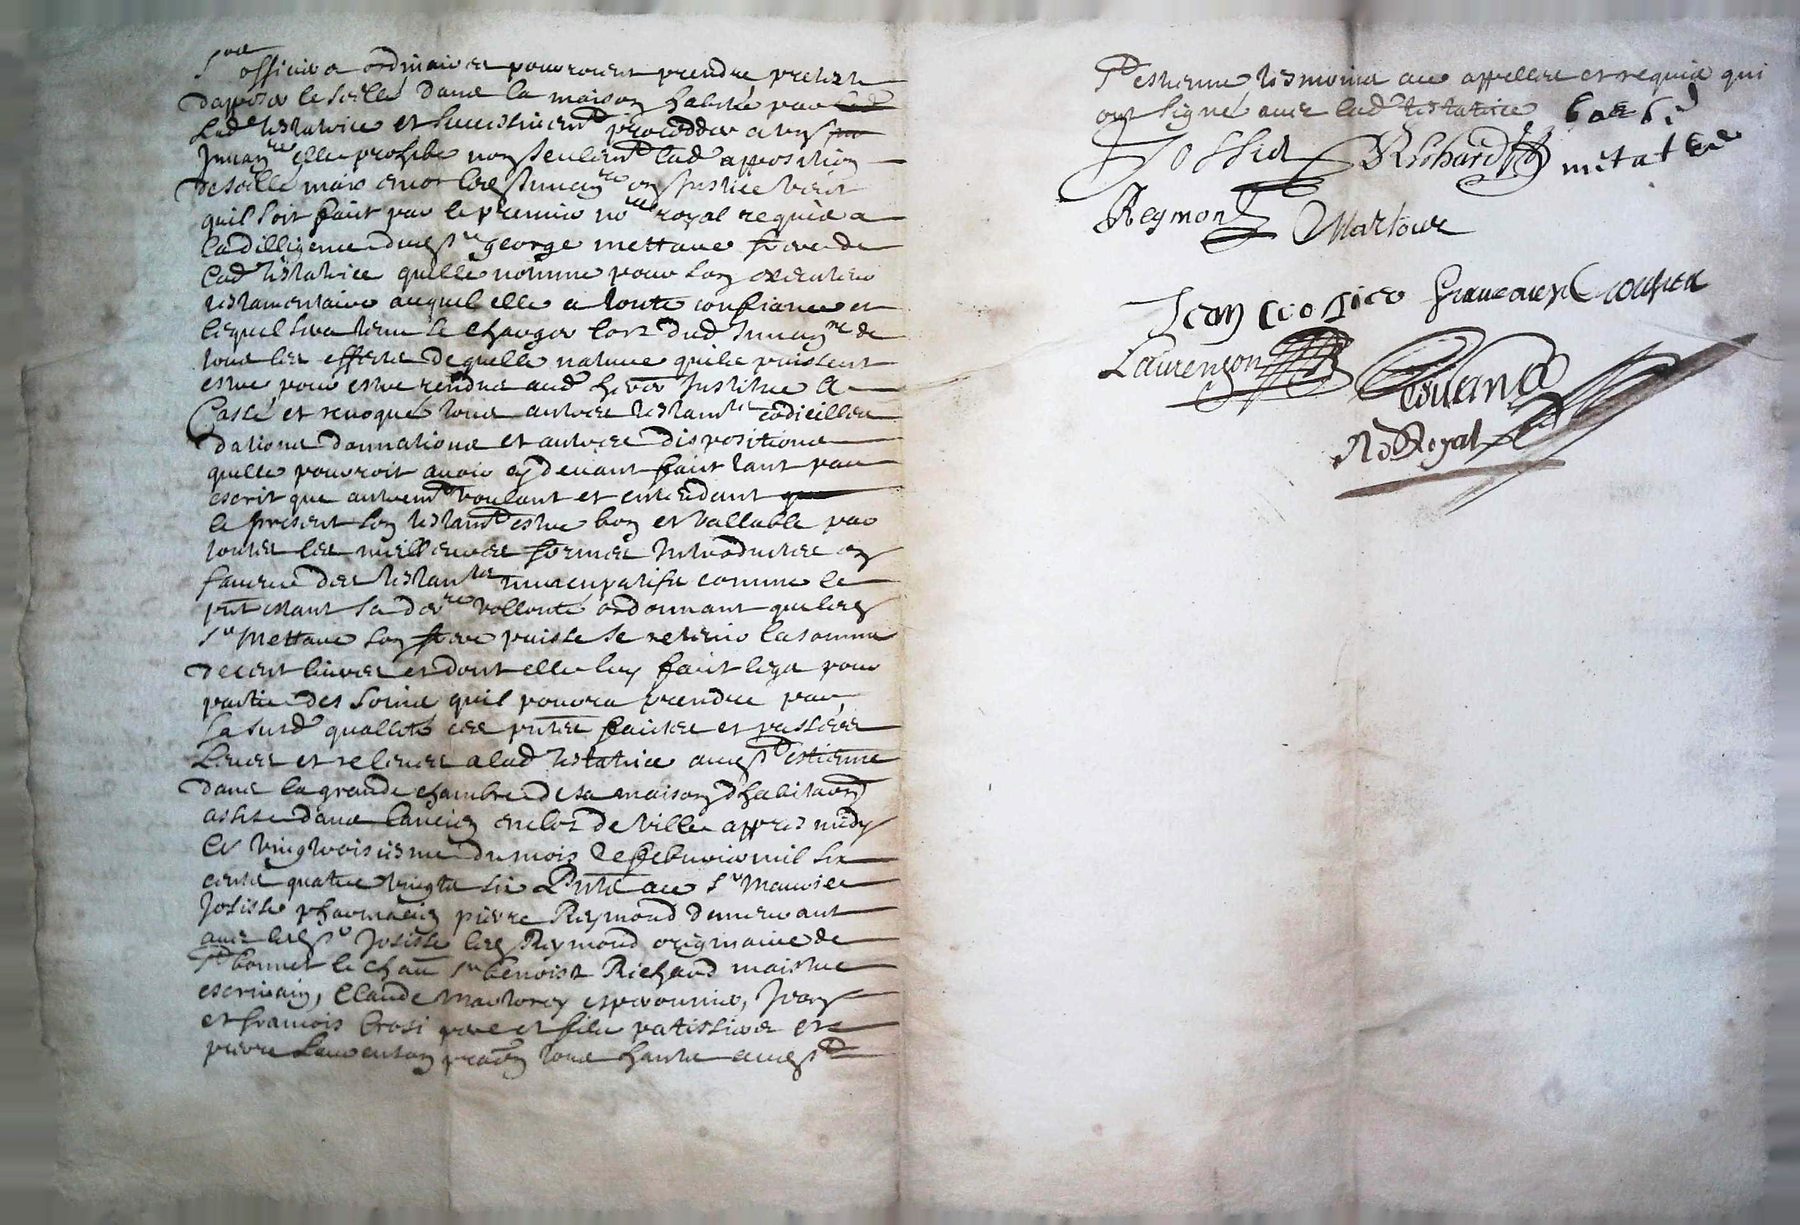 Srs officiers ordinaires pourroient prendre pretexte
dapposer le scellé dans la maison habitée par
lade testatrice et successivement proceder a un
Invanre elle prohibe non seulemt lade apposition
de scellé mais encor lesd Invanres en Justice veut
quil soit faict par le premier nore royal requis a
la dilligence dud sr george mettare frere de
lade testatrice quelle nomme pour son executeur
testamentaire auquel elle a toute confiance et
lequel sera tenu se charger lors dud Invanre de
tous les effects de quelle nature quils puissent
estre, pour estre rendus aud heritier Institué A
Cassé et revoqué tous autres testamts codicilles
dations donnations et autres dispositions
quelle pourroit avoir cy devant faict tant par
escrit que autremt voulant et entendant que
le present son testamt estre bon et vallable par
toutes les meilleures formes Introduites en
faveur des testamts nuncupatifs comme le
pnt estant sa dere vollonté ordonnant que led
sr Mettare son frere puisse se retenir la somme
de cent livres et dont elle luy faict legs pour
partie des soins quil pourra prendre par
sa susde quallité ces pntes faictes et passées
Leues et releues a lad testatrice aud st estienne
dans la grande chambre de sa maison dhabitaon
assise dans lancien enclos de ville appres midy
le vingtroisiesme du mois de febvrier mil six
cents quatre vingts six Pnts aux sr Maurice
Josisse pharmacien pierre Reymond demeurant
avec led sr Josisse led Reymond originaire de
st bonnet le chau sr benoist Richard maistre
escrivain, Claude Martorey esperonnier, Jean
et francois Crosi pere et fils patissiers et
pierre Laurenson praen tous habts aud st
St estienne tesmoins aux appellée et requis qui
ont signé avec lade testatrice
Jossier Richard metare
Reymon Martoure
Jean Crosier francoys Crousier
Laurenson
Nre Royal